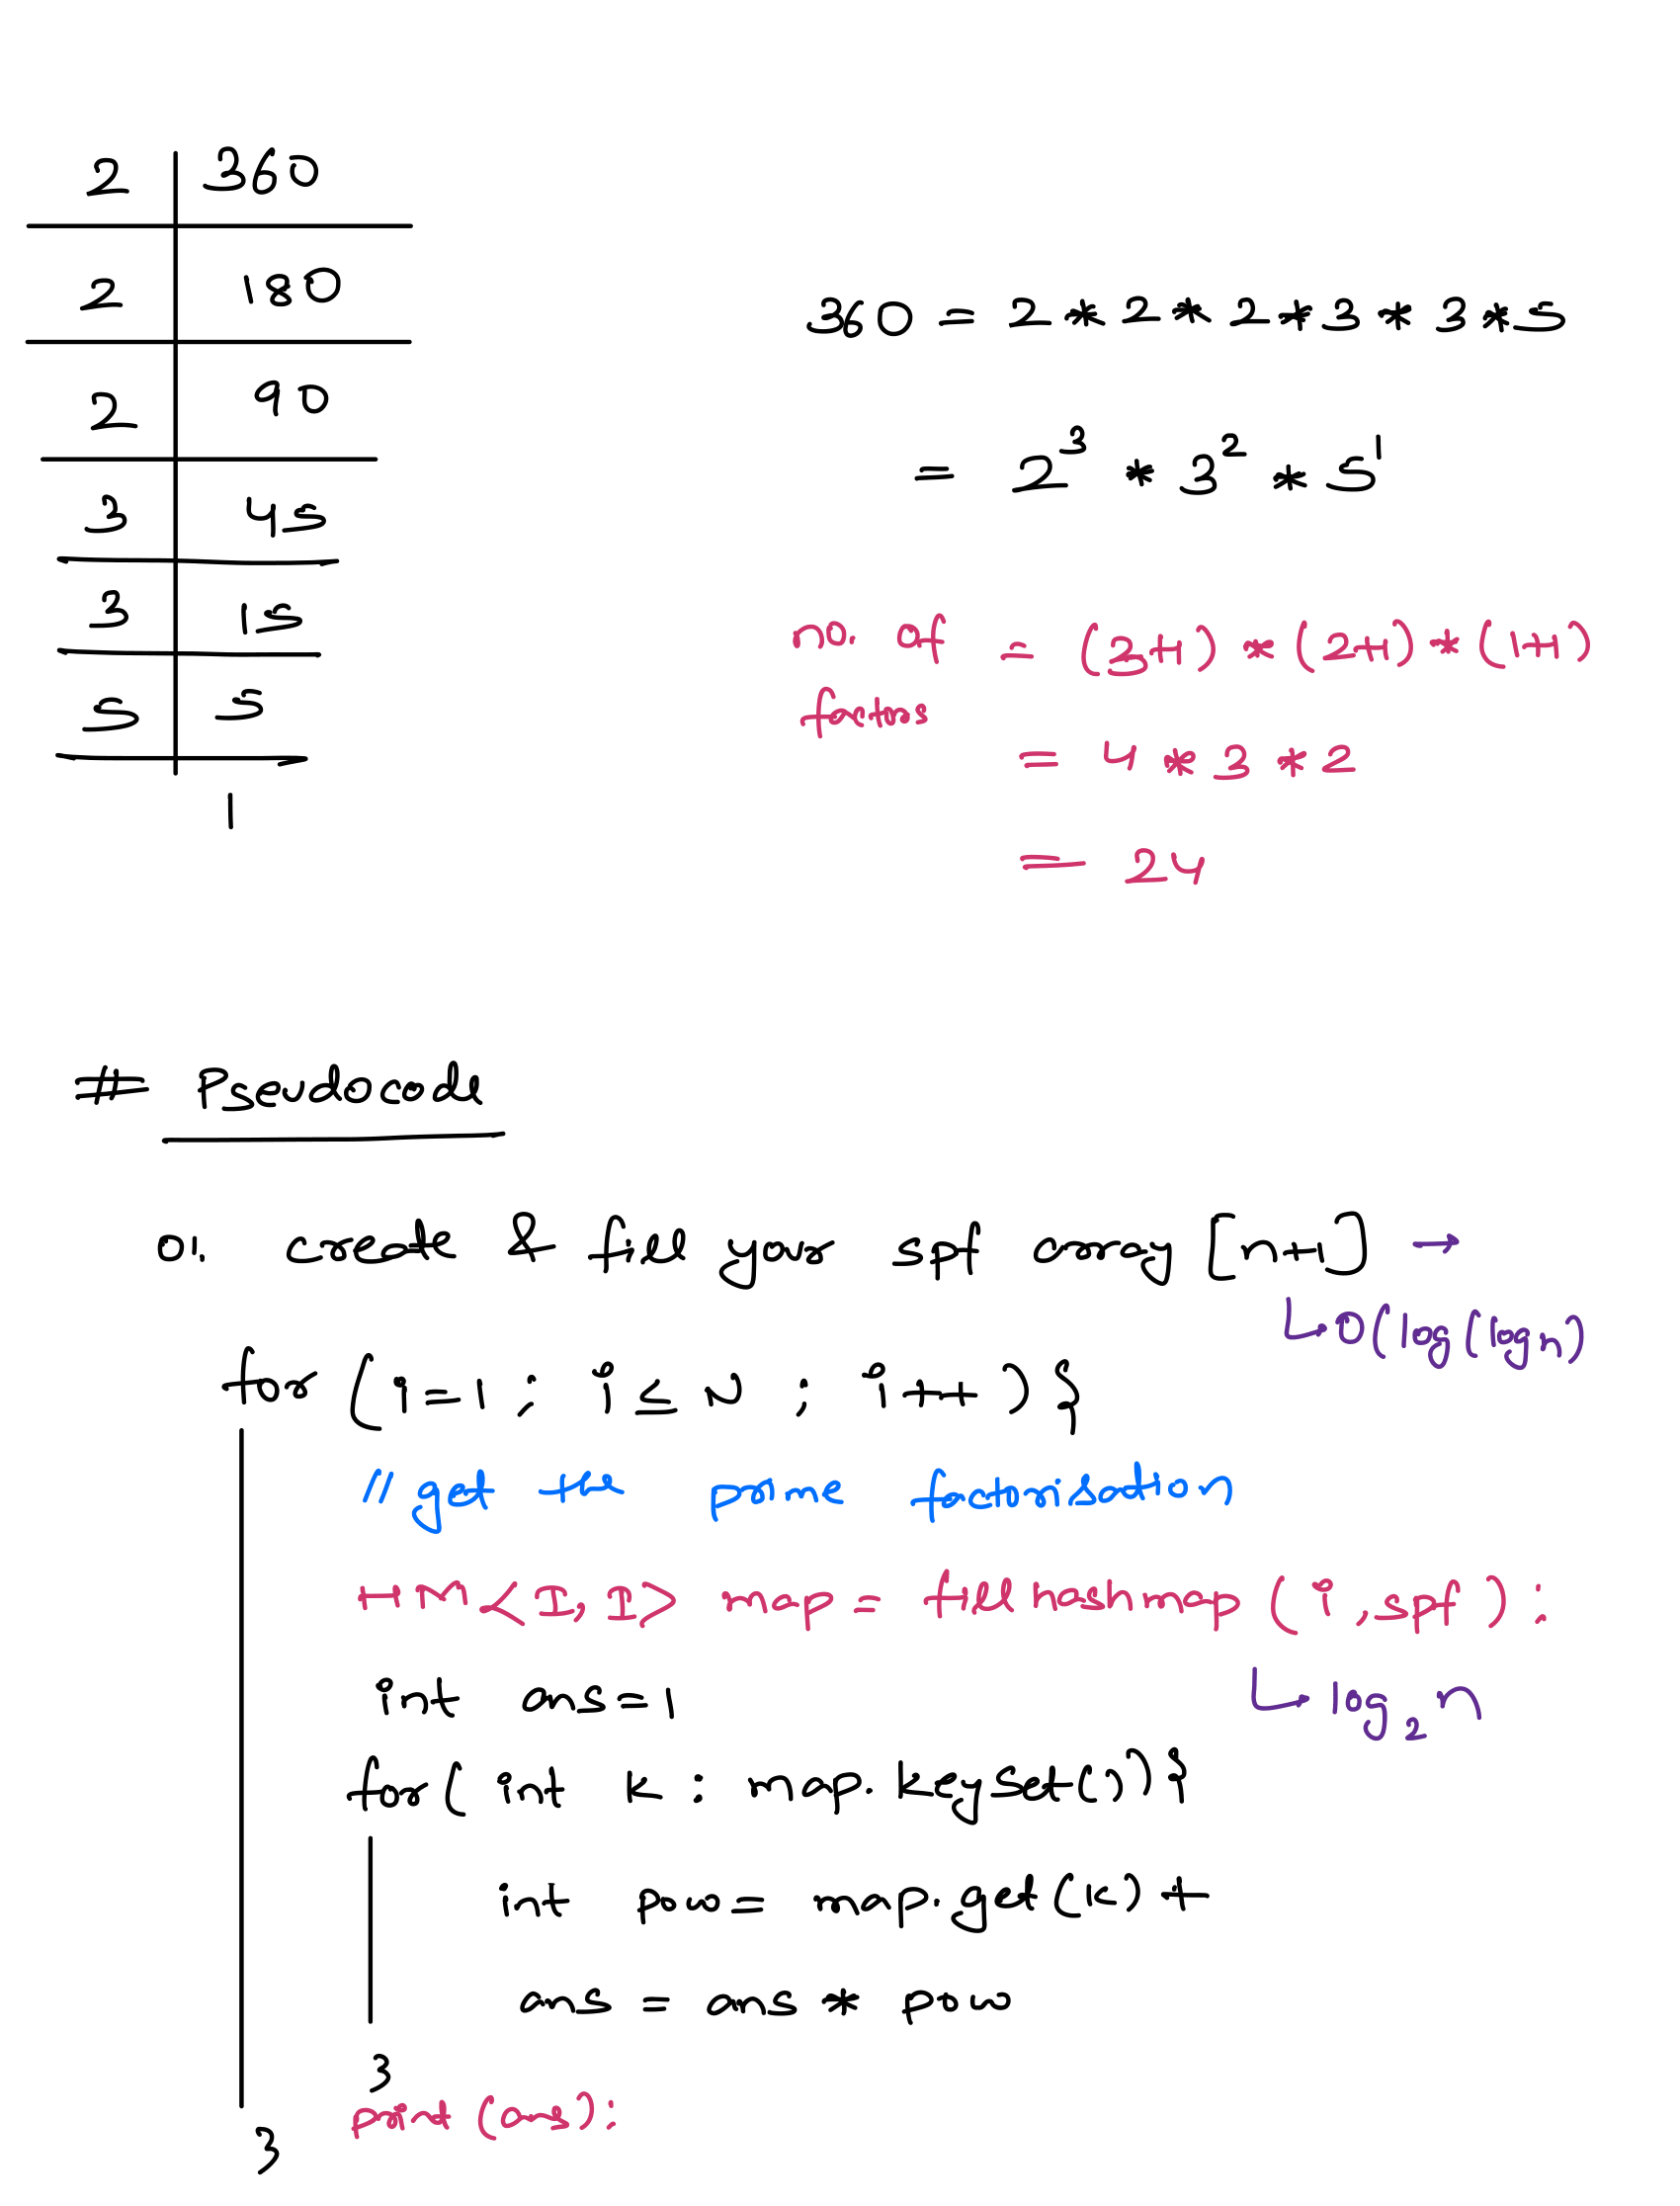 2 | 360
2 | 180
2 | 90
3 | 45
3 | 15
5 | 5
1
360 = 2 * 2 * 2 * 3 * 3 * 5
= 2³ * 3² * 5¹
no. of factors = (3+1) * (2+1) * (1+1)
= 4 * 3 * 2
= 24
# Pseudocode
01. create & fill your spf array [n+1] →
↳ O(log(logn)
for (i=1 ; i ≤ N ; i++ ) {
// get the prime factorisation
HM<I,I> map = fill hashmap ( i , spf ) ;
↳ log₂ n
int ans=1
for( int k : map.keyset()) {
int pow = map.get(k) +
ans = ans * pow
}
print (ans);
}